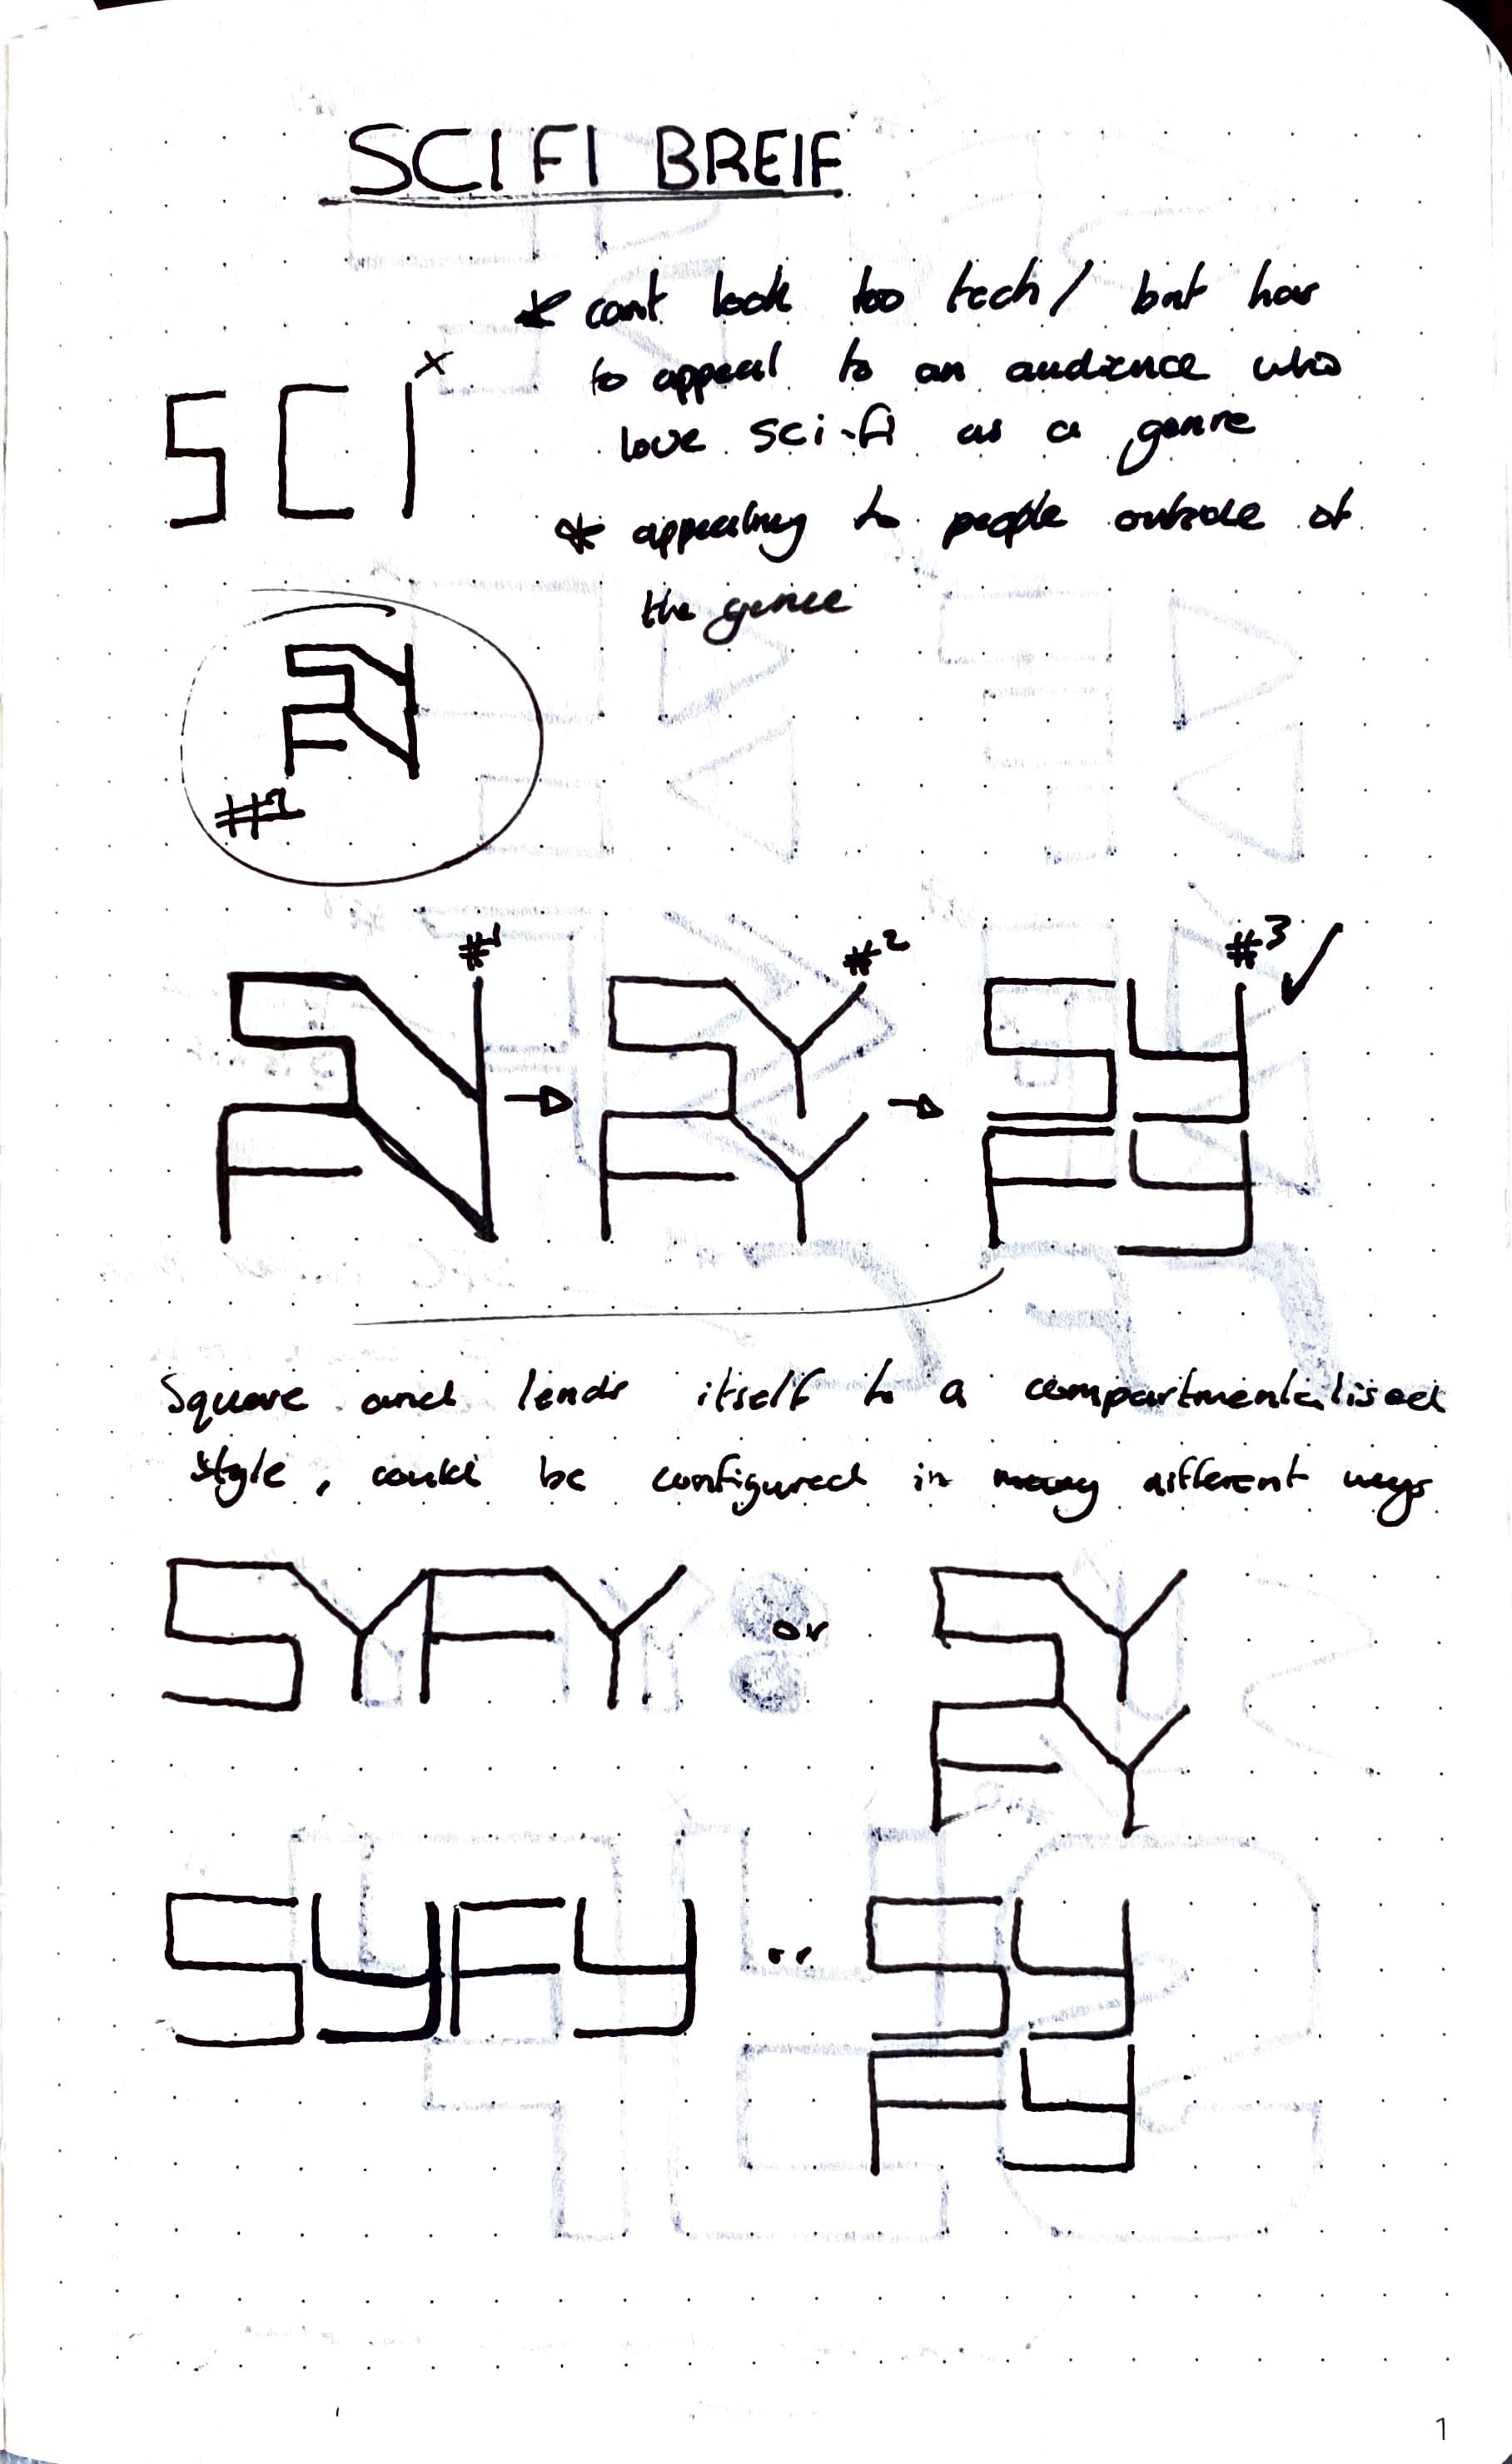 SCI FI BREIF
* cant look too tech/ but has
to appeal to an audience who
love sci-fi as a genre
* appealing to people outside of
the genre
SCI x
SY
FY
#1
#1 #2 #3 ✓
SY → SY → SY
FY FY FY
Square and lends itself to a compartmentalised
style, could be configured in many different ways
SYFY or SY
FY
SYFY or SY
FY
1